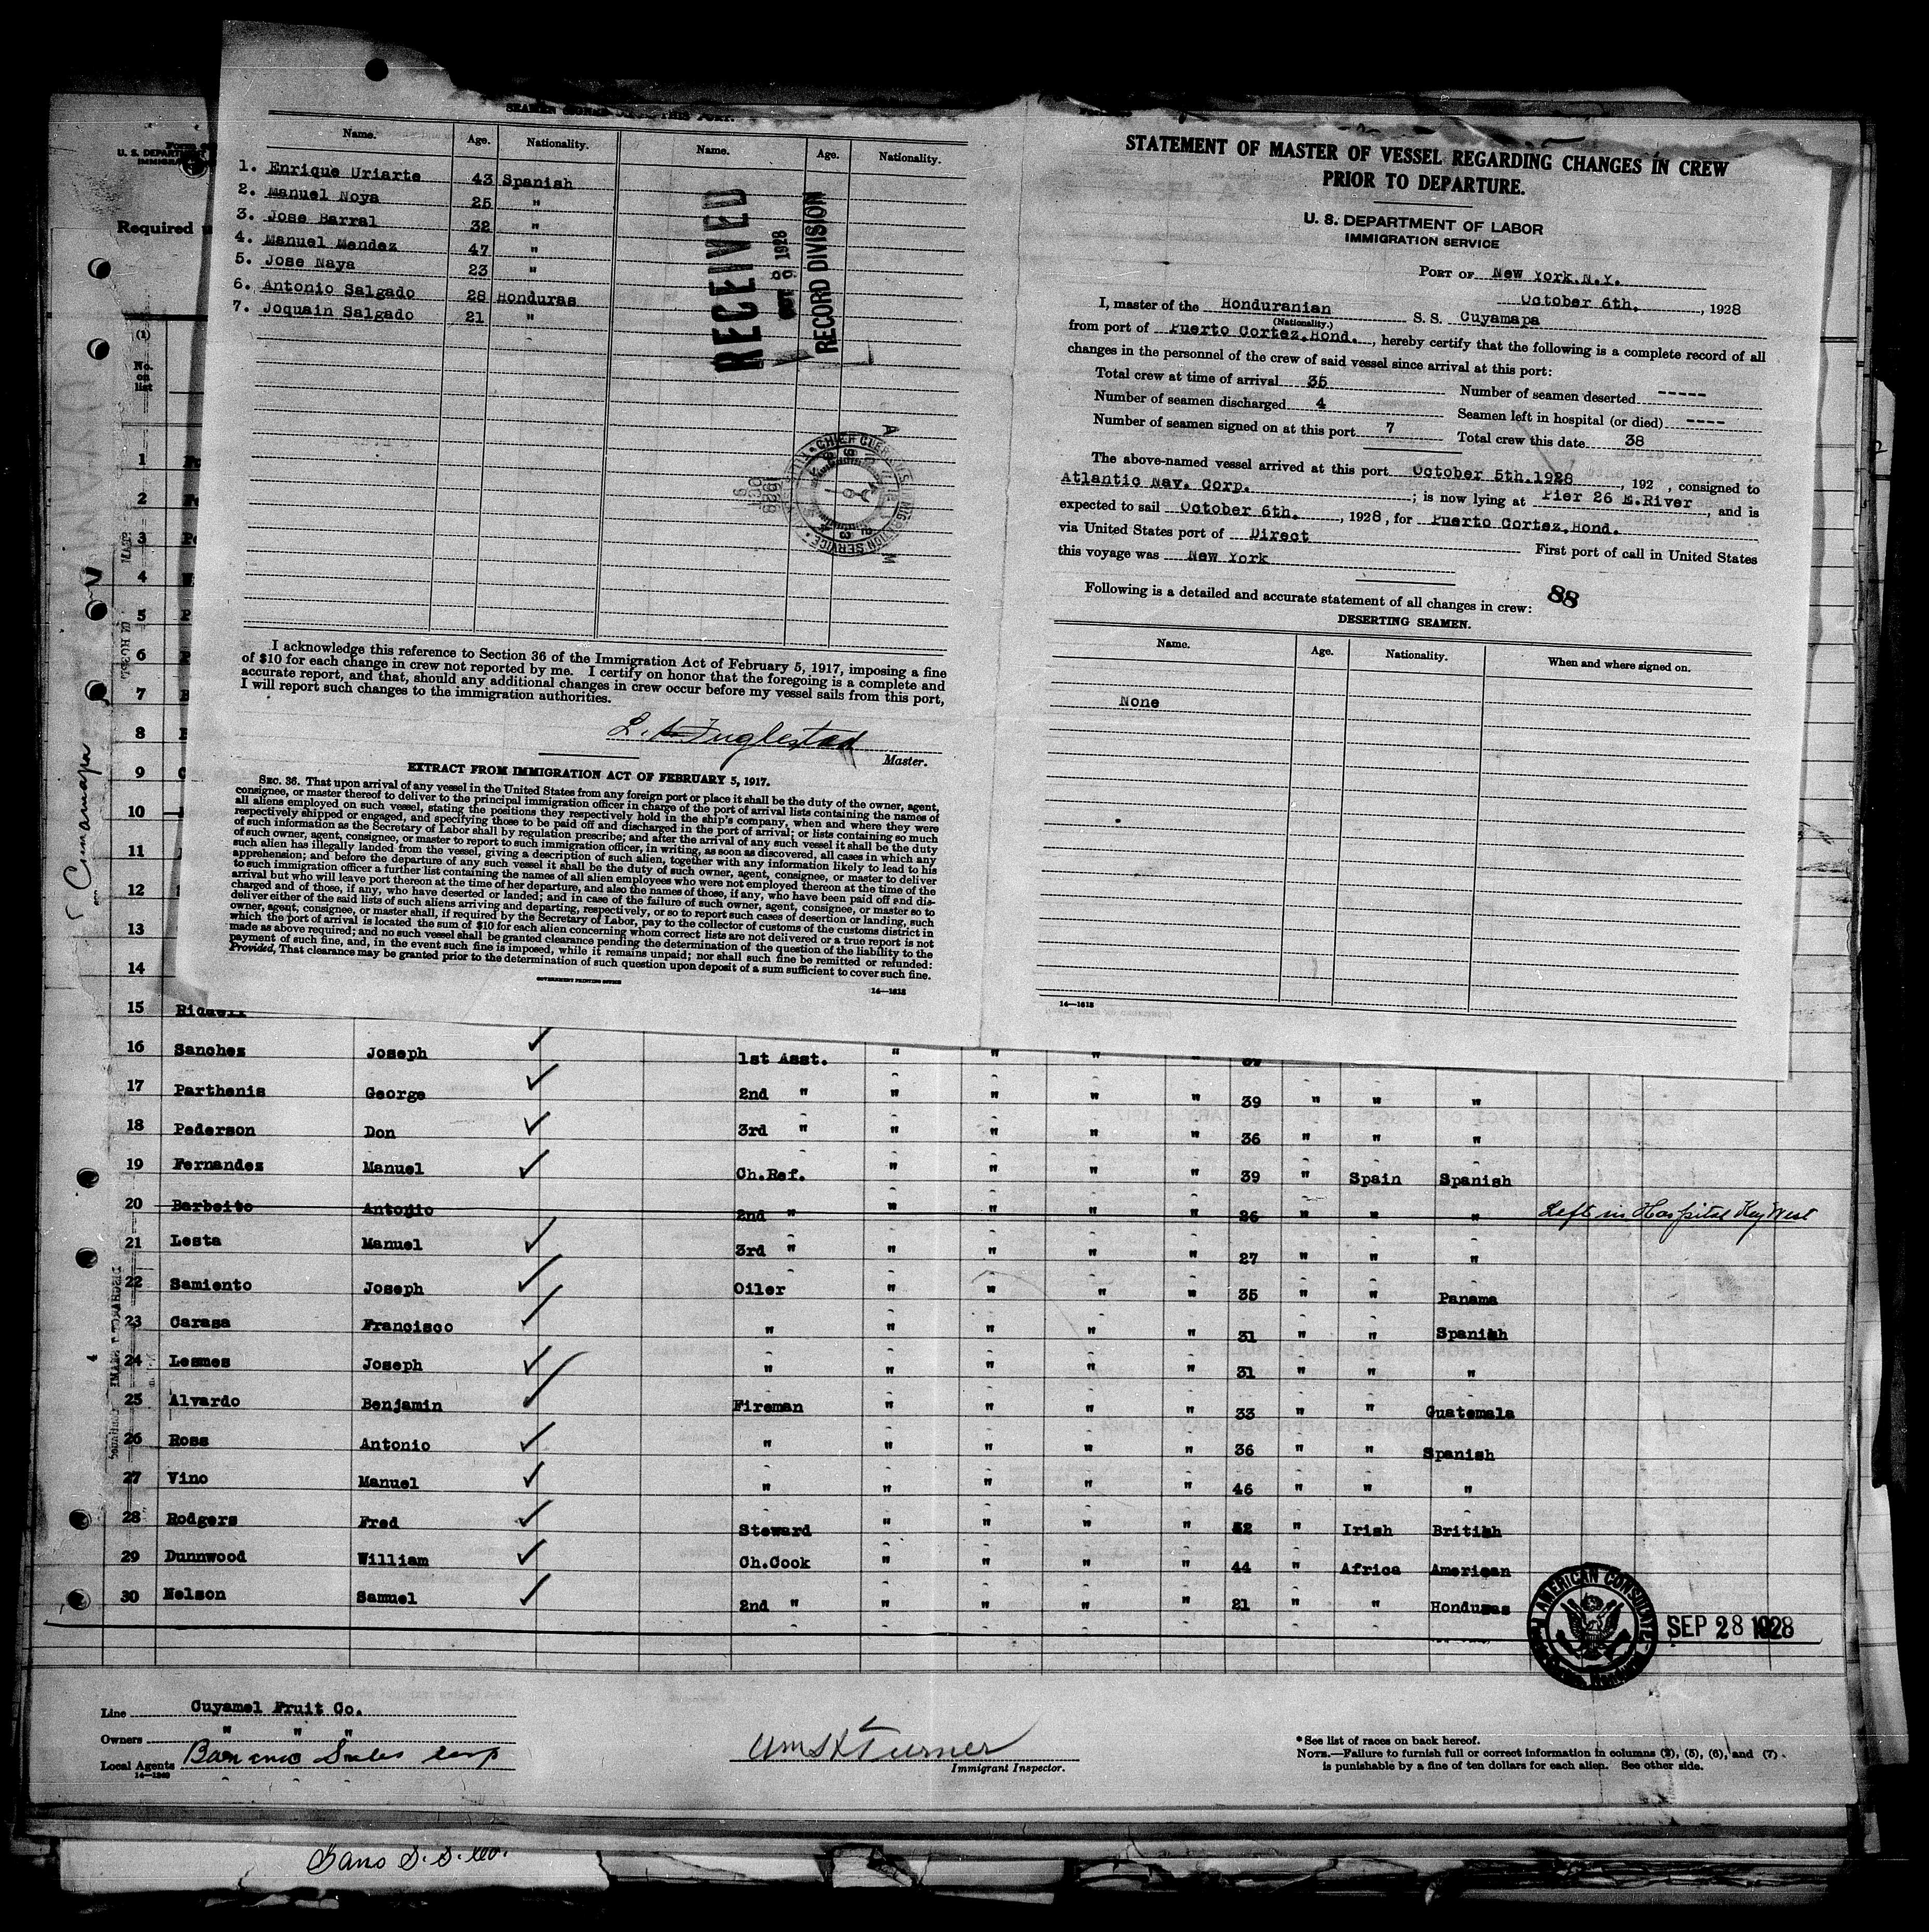 SEAMEN SIGNED THIS PORT.
Name. Age. Nationality. Name. Age. Nationality.
1. Enrique Uriarte 43 Spanish
2. Manuel Noya 25 "
3. Jose Barral 32 "
4. Manuel Mendez 47 "
5. Jose Naya 23 "
6. Antonio Salgado 28 Honduras
7. Joquain Salgado 21 "
RECEIVED
1928
RECORD DIVISION
I acknowledge this reference to Section 36 of the Immigration Act of February 5, 1917, imposing a fine
of $10 for each change in crew not reported by me. I certify on honor that the foregoing is a complete and
accurate report, and that, should any additional changes in crew occur before my vessel sails from this port,
I will report such changes to the immigration authorities.
Master.
EXTRACT FROM IMMIGRATION ACT OF FEBRUARY 5, 1917.
SEC. 36. That upon arrival of any vessel in the United States from any foreign port or place it shall be the duty of the owner, agent,
consignee, or master thereof to deliver to the principal immigration officer in charge of the port of arrival lists containing the names of
all aliens employed on such vessel, stating the positions they respectively hold in the ship's company, when and where they were
respectively shipped or engaged, and specifying those to be paid off and discharged in the port of arrival; or lists containing so much
of such information as the Secretary of Labor shall by regulation prescribe; and after the arrival of any such vessel it shall be the duty
of such owner, agent, consignee, or master to report to such immigration officer, in writing, as soon as discovered, all cases in which any
such alien has illegally landed from the vessel, giving a description of such alien, together with any information likely to lead to his
apprehension; and before the departure of any such vessel it shall be the duty of such owner, agent, consignee, or master to deliver
to such immigration officer a further list containing the names of all alien employees who were not employed thereon at the time of the
arrival but who will leave port thereon at the time of her departure, and also the names of those, if any, who have been paid off and dis-
charged and of those, if any, who have deserted or landed; and in case of the failure of such owner, agent, consignee, or master so to
deliver either of the said lists of such aliens arriving and departing, respectively, or so to report such cases of desertion or landing, such
owner, agent, consignee, or master shall, if required by the Secretary of Labor, pay to the collector of customs of the customs district in
which the port of arrival is located the sum of $10 for each alien concerning whom correct lists are not delivered or a true report is not
made as above required; and no such vessel shall be granted clearance pending the determination of the question of the liability to the
payment of such fine, and, in the event such fine is imposed, while it remains unpaid; nor shall such fine be remitted or refunded:
Provided, That clearance may be granted prior to the determination of such question upon deposit of a sum sufficient to cover such fine.
GOVERNMENT PRINTING OFFICE
14—1618
STATEMENT OF MASTER OF VESSEL REGARDING CHANGES IN CREW
PRIOR TO DEPARTURE.
U. S. DEPARTMENT OF LABOR
IMMIGRATION SERVICE
PORT OF New York.N.Y.
October 6th. , 1928
I, master of the Honduranian S. S. Cuyamapa
(Nationality.)
from port of Puerto Cortez.Hond. , hereby certify that the following is a complete record of all
changes in the personnel of the crew of said vessel since arrival at this port:
Total crew at time of arrival 35 Number of seamen deserted -----
Number of seamen discharged 4 Seamen left in hospital (or died) ----
Number of seamen signed on at this port 7 Total crew this date 38
The above-named vessel arrived at this port October 5th.1928 , 192 , consigned to
Atlantic Nav. Corp. ; is now lying at Pier 26 E.River , and is
expected to sail October 6th. , 1928, for Puerto Cortez.Hond.
via United States port of Direct First port of call in United States
this voyage was New York
Following is a detailed and accurate statement of all changes in crew: 88
DESERTING SEAMEN.
Name. Age. Nationality. When and where signed on.
None
14—1618
U. S. DEPARTMENT
Required
(1)
No. on list
1
2
3
4
5
6
7
8
9
10
11
12
13
14
15
16 Sanchez Joseph 1st Asst. " " " "
17 Parthenis George 2nd " " " " " 39 " " "
18 Pederson Don 3rd " " " " " 36 " " "
19 Fernandez Manuel Ch.Ref. " " " " 39 " Spain Spanish
20 Barbeito Antonio 2nd " " " " " 26 " " " Left in Hospital Key West
21 Lesta Manuel 3rd " " " " " 27 " " "
22 Samiento Joseph Oiler " " " " 35 " " Panama
23 Carasa Francisco " " " " " 31 " " Spanish
24 Lesmes Joseph " " " " " 31 " " "
25 Alvardo Benjamin Fireman " " " " 33 " " Guatemala
26 Ross Antonio " " " " " 36 " " Spanish
27 Vino Manuel " " " " " 46 " " "
28 Rodgers Fred Steward " " " " " Irish British
29 Dunnwood William Ch.Cook " " " " 44 " Africa American
30 Nelson Samuel 2nd " " " " " 21 " " Honduras
AMERICAN CONSULATE
SEP 28 1928
Line Cuyamel Fruit Co.
Owners " " "
Local Agents Banana Sales Corp
14—1240
Wm S K Turner
Immigrant Inspector.
* See list of races on back hereof.
NOTE.—Failure to furnish full or correct information in columns (2), (5), (6), and (7)
is punishable by a fine of ten dollars for each alien. See other side.